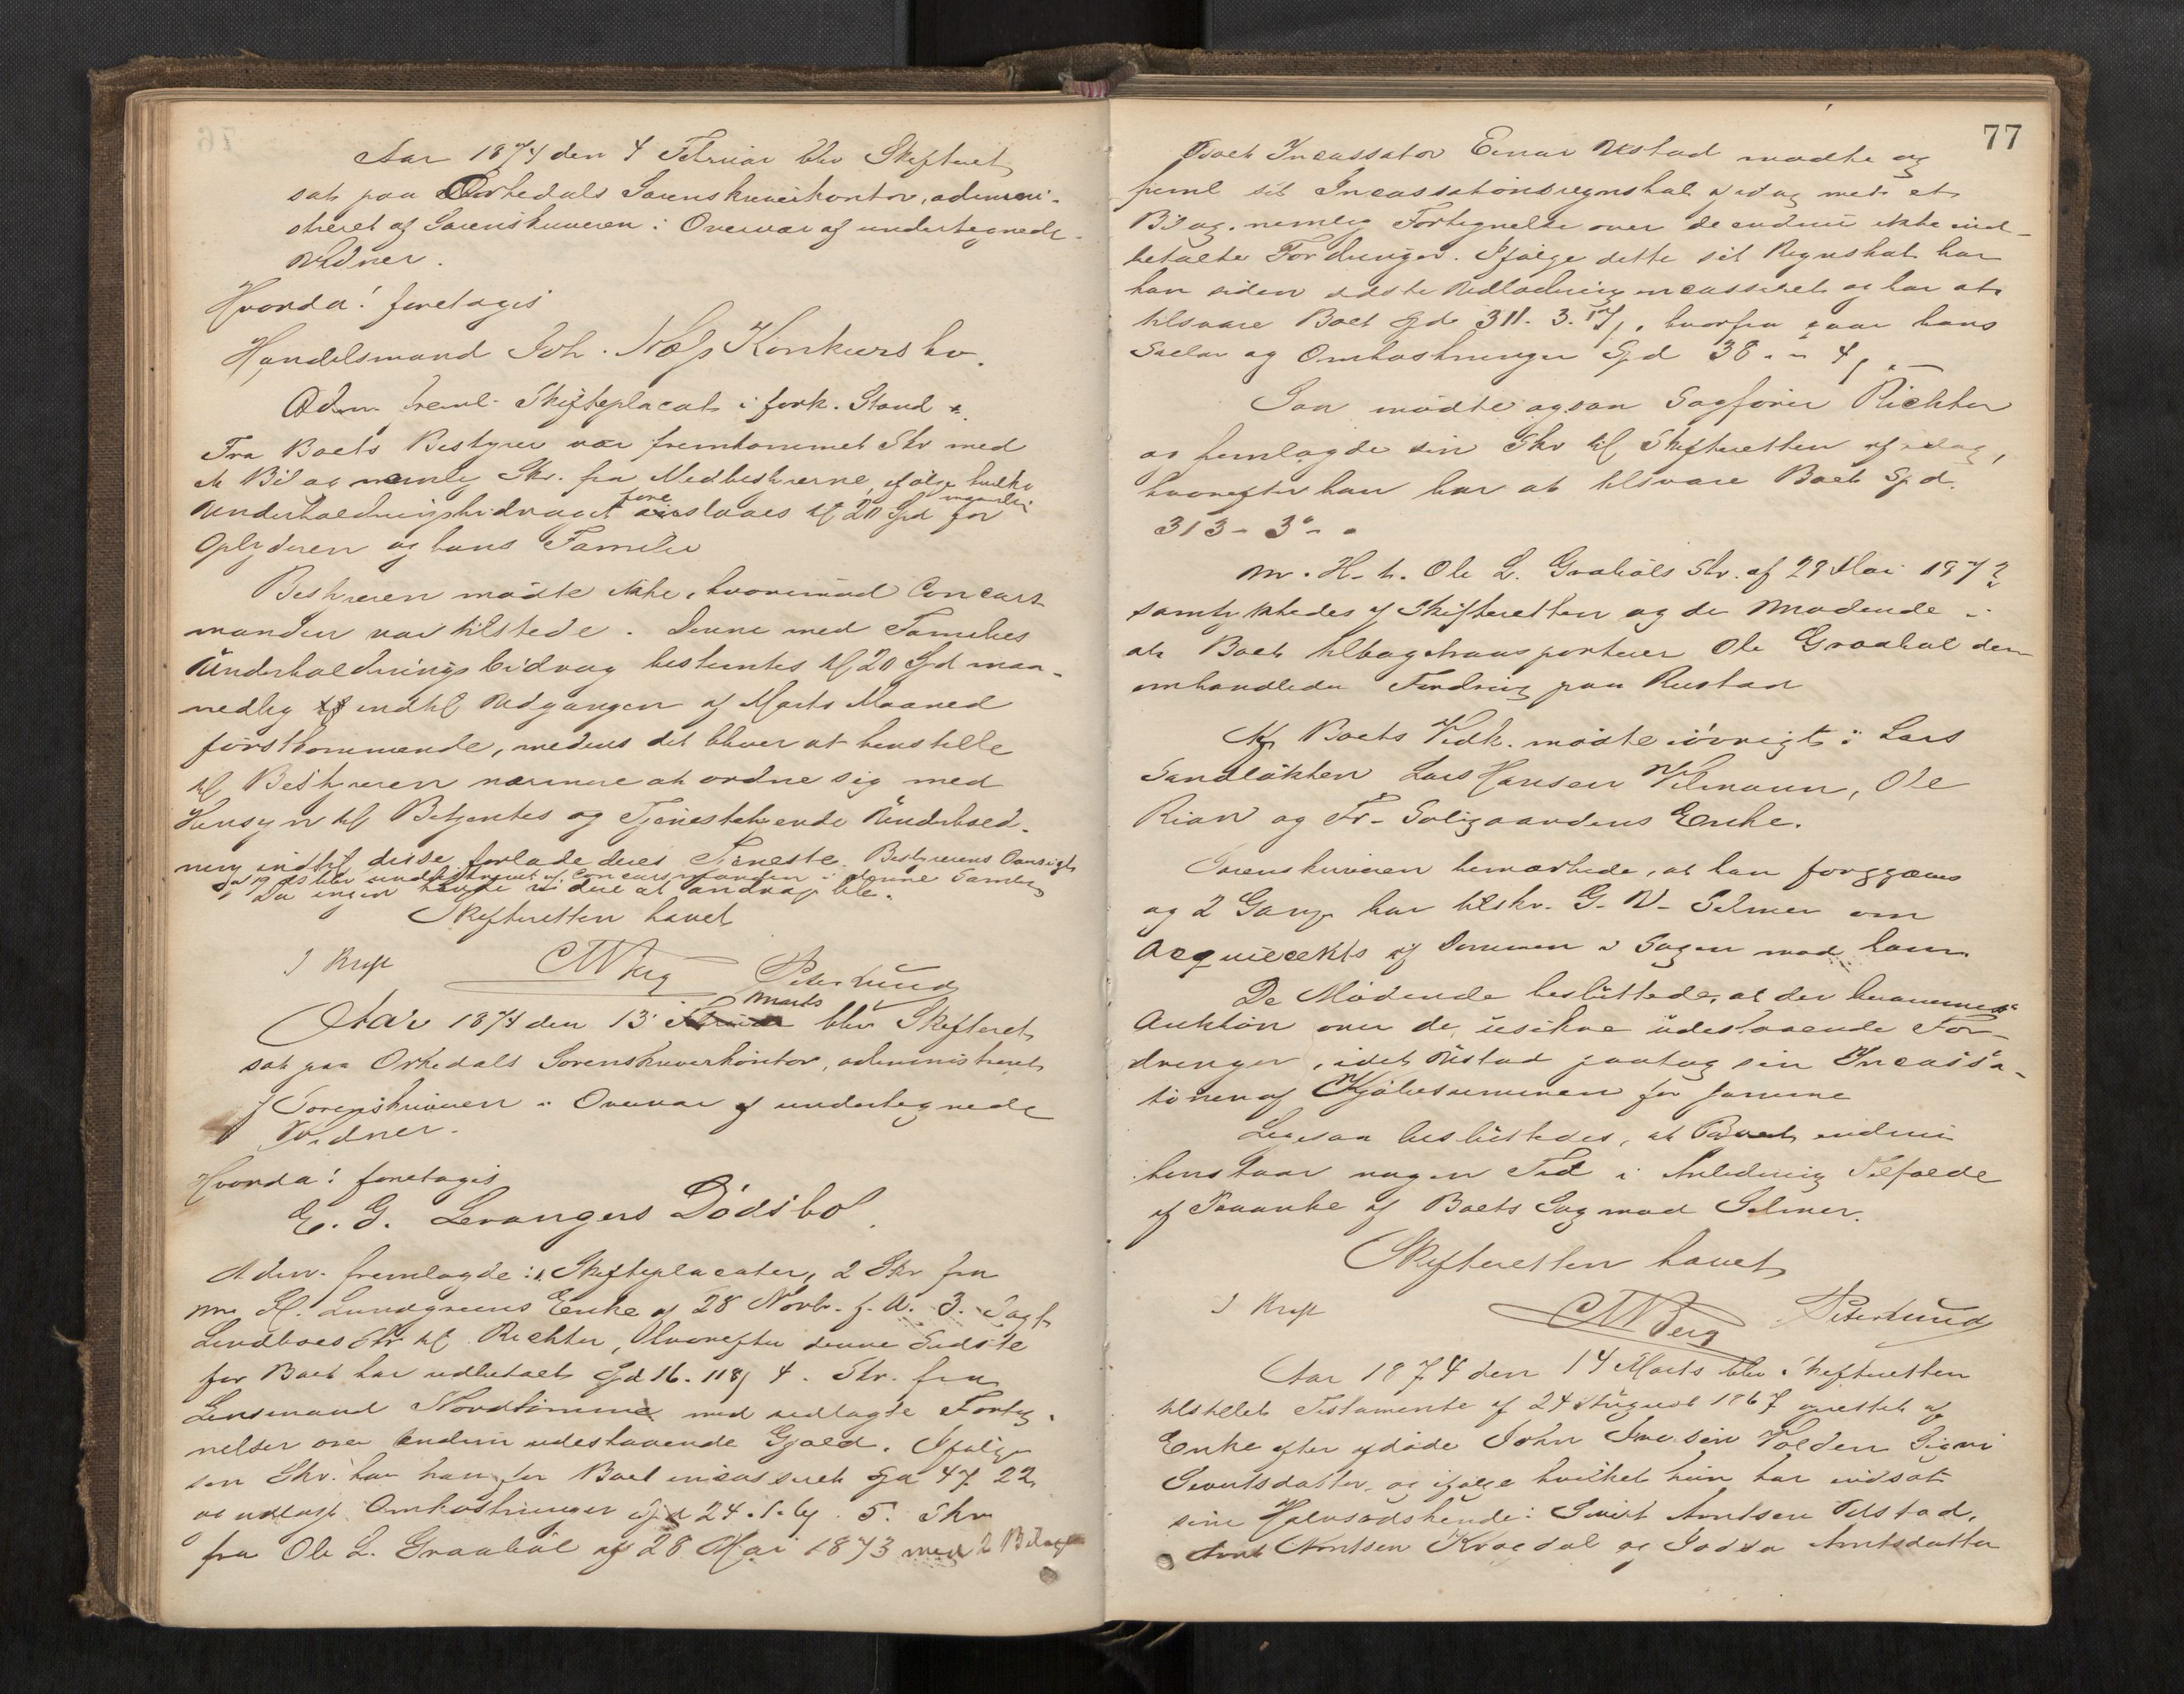 Aar 1874 den 4 Februar blev Skifteret
sat paa Orkedals Sorenskriverkontor, admini-
streret af Sorenskriveren i Overvær af undertegnede
Vidner.
Hvorda! foretoges
Handelsmand Joh. Konkursbo.
Adm. freml. Skifteplacat i fork. Stand
Fra Boets Bestyrer var fremkommet Skr med
et Bilag nemlig Skr. fra Medbestyrerne, ifølge hvilke
Underholdningsbidraget foreslaaes til 20 Spd maanedlig for
og hans Familie
Bestyreren mødte ikke, hvorimod Concurs-
manden var tilstede. Denne med Families
Underholdningsbidrag bestemtes til 20 Spd maa-
nedlig indtil Udgangen af Marts Maaned
førstkommende, medens det bliver at henstille
til Bestyreren nærmere at ordne sig med
Hensyn til Betjentes og Tjenestetyendes Underhold-
ning indtil disse forlade deres Tjeneste. Bestyrerens
blev af Concursmanden i denne Samling
Da ingen havde videre at andrage blev
Skifteretten hævet
J Kraft CM Berg Peter Lund
Aar 1874 den 13 Marts blev Skifteret
sat paa Orkedals Sorenskriverkontor, administreret
af Sorenskriveren i Overvær af undertegnede
Vidner.
Hvorda! foretoges
E. G. Levangers Dødsbo.
Adm. fremlagde: 1, Skifteplacater, 2 Skr fra
Lundgreens Enke af 28 Novbr. f. A. 3.
Lindboes Skr. til Richter, hvorefter denne Sidste
for Boet har udbetalt Spd 16. 118 4. Skr. fra
Lensmand med vedlagte Forteg-
nelser over endnu udestaaende Gjæld. Ifølge
sin Skr. har han for Boet incasseret Spd 47. 22
og udlagt Omkostninger Spd 24. 5. Skr
fra Ole L. Graabol af 28 Mai 1873 med 2 Bilage
77
Boets Incassator Einar Ustad mødte og
freml sit Incassationsregnskab af idag med et
Bilag, nemlig Fortegnelse over de endnu ikke ind-
betalte Fordringer. Ifølge dette sit Regnskab har
han siden sidste Udlodning incasseret og har at
tilsvare Boet Spd 311. 3. 17, hvorfra gaar hans
Salær og Omkostninger Spd 38 - " 4,
Saa mødte ogsaa Sagfører Richter
og fremlagde sin Skr til Skifteretten af idag,
hvorefter han har at tilsvare Boet Spd.
313 - 3
M. H. t. Ole L. Skr. af 29 Mai 187
samtykkedes af Skifteretten og de Mødende i
at Boet tilbagetransporterer Ole Graabol den
omhandlede Fordring paa Rustad
Paa Boets Vedk. mødte iøvrigt: Lars
Sandløkken Lars Hansen, Ole
Rian og Fr. Enke.
Sorenskriveren bemærkede, at han forgjæves
og 2 Gange har tilskr. G. W. Selmer om
af Dommen i Sagen mod ham
De Mødende besluttede, at der berammes
Auktion over de usikre udestaaende For-
dringer, idet Ustad paatog sin Incassa-
tionen af Kjøbesummen for samme
Ligesaa besluttedes, at Boet endnu
henstaar nogen Tid i Anledning Tilfælde
af Paaanke af Boets Sag mod Selmer.
Skifteretten hævet
J Kraft CM Berg Peter Lund
Aar 1874 den 14 Marts blev Skifteretten
tilstillet Testamente af 24 August 1867 oprettet af
Enke efter afdøde John Iversen Volden
Sivertsdatter, og ifølge hvilket hun har indsat
sine Halvsødskende: Sivert Arntsen Ustad,
Arnt Arntsen Krogdal og Arntsdatter